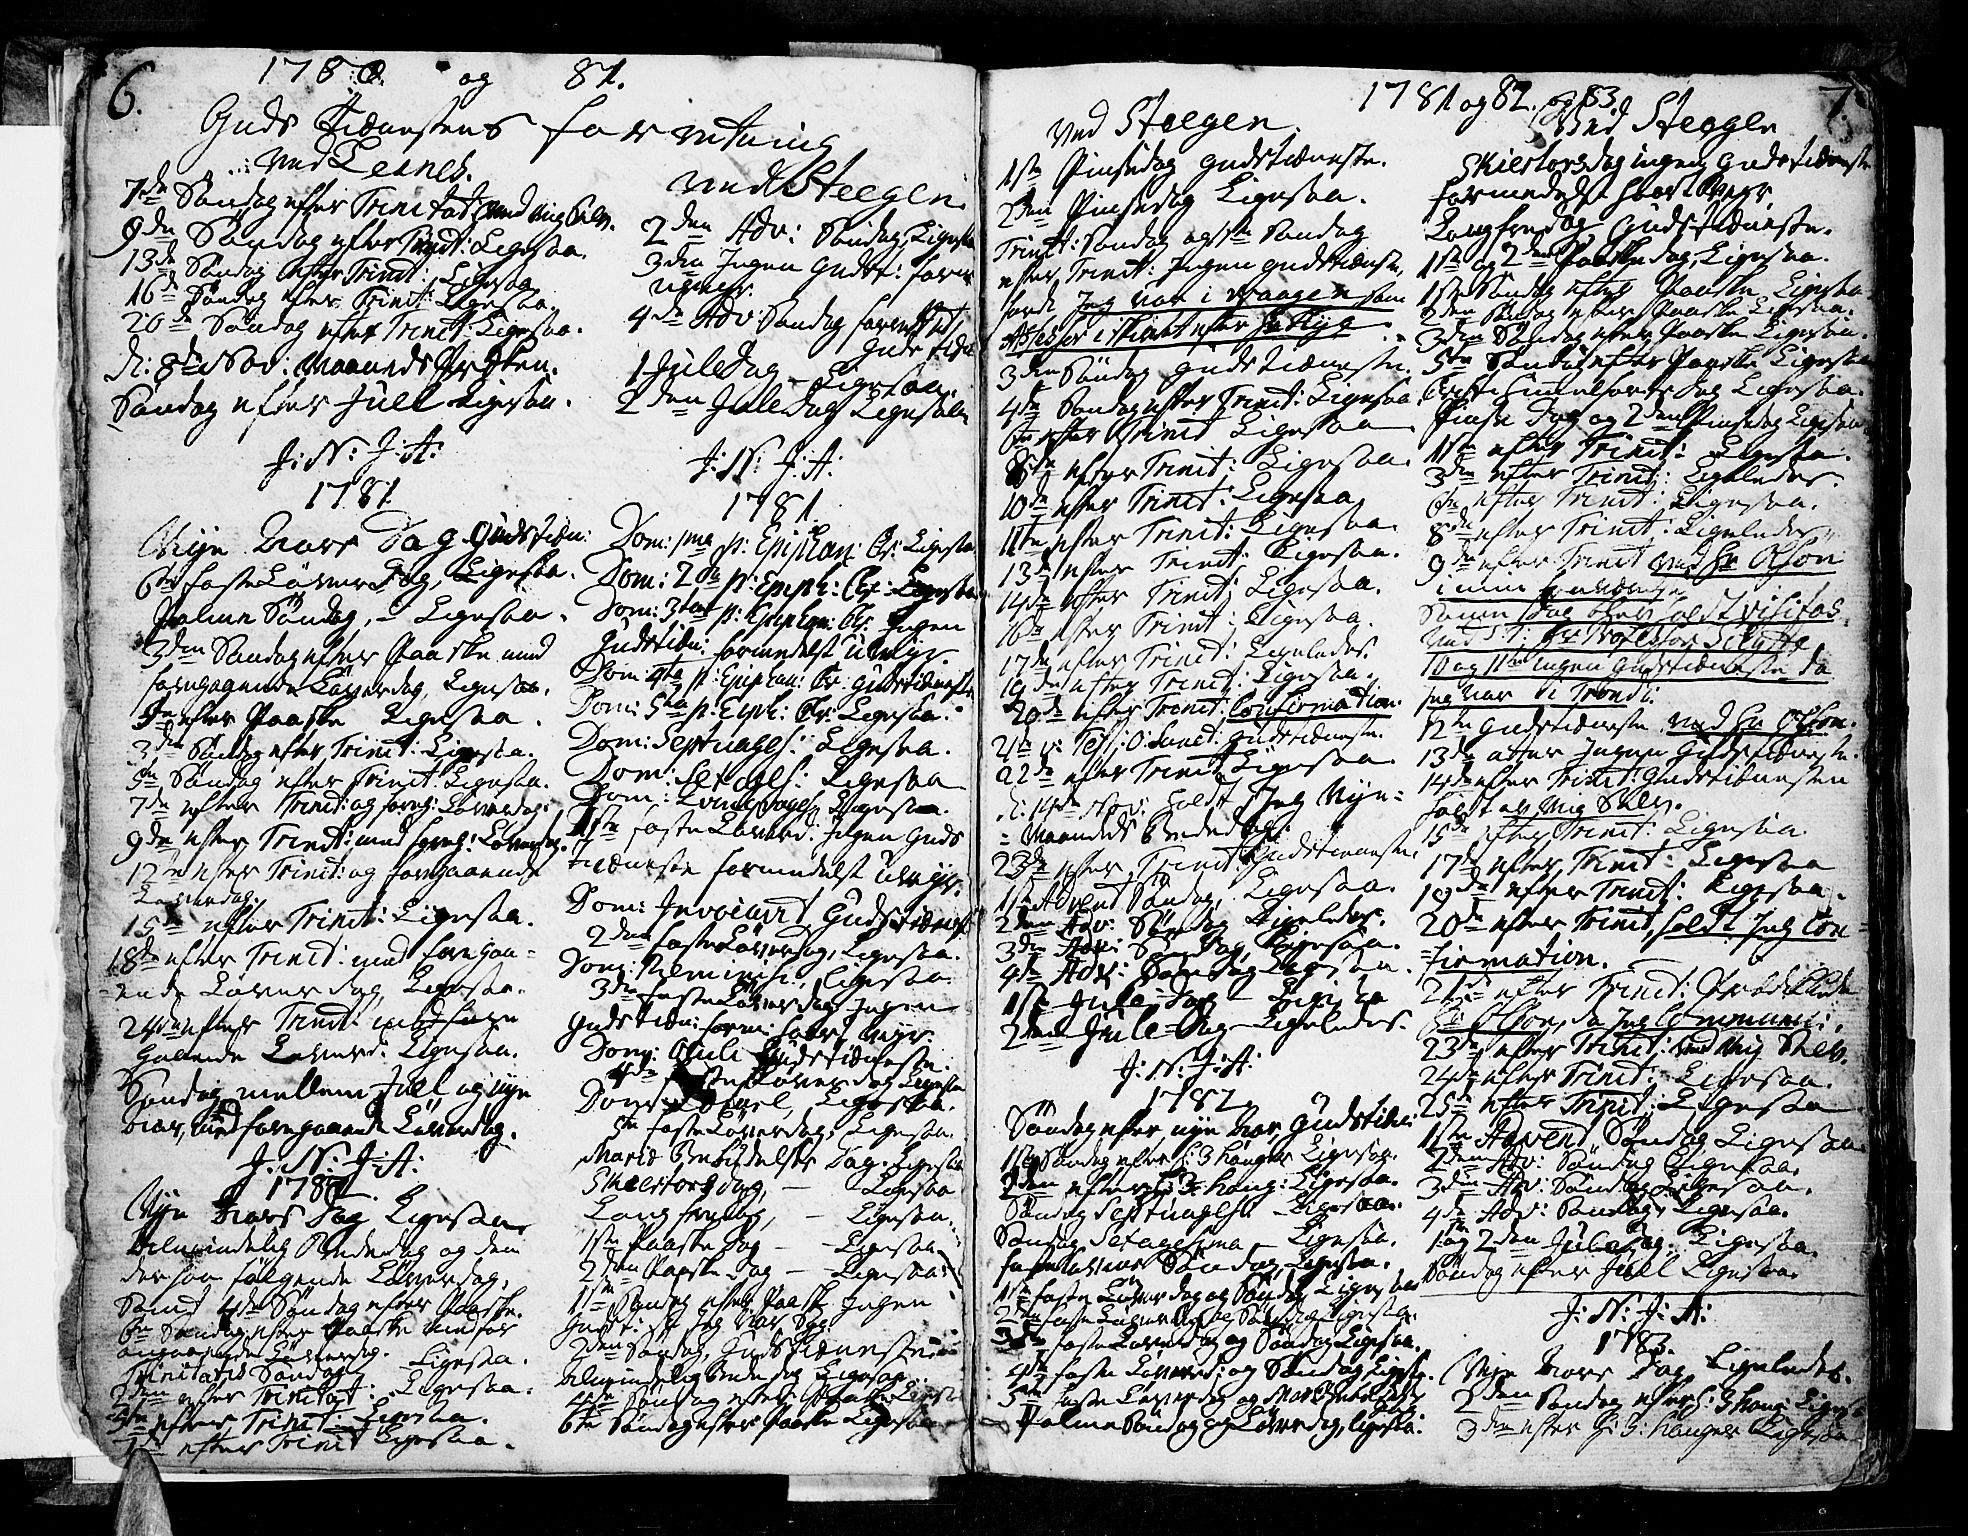 6.
1780. og 81.
Guds Tienestens forretning
ved Leenes.
7de Søndag efter Trinitat: med mig Selv.
9de Søndag efter Trinit: Ligesaa.
13de Søndag efter Trinit: Ligesaa
16de Søndag efter Trinit: Ligesaa.
20de Søndag efter Trinit: Ligesaa.
d: 8de Nov: Maaneds Prækken.
Søndag efter Jull Ligesaa.
J: N: J: A:
1781
Nye Aars Dag Gudstien:
6te faste Løverdag, Ligesaa.
Palme Søndag, - Ligesaa.
3den Søndag efter Paaske med
foregaaende Løverdag, Ligesaa.
efter Paaske Ligesaa.
3die Søndag efter Trinit: Ligesaa.
5te Søndag efter Trinit: Ligesaa.
7de efter Trinit: og foreg: Løverdag.
9de efter Trinit: med foreg: Løverdag.
12te efter Trinit: og foregaaende
Løverdag.
15de efter Trinit: Ligesaa.
18de efter Trinit: med foregaa-
ende Løverdag, Ligesaa.
24de efter Trinit: med fore
gaaende Løverd: Ligesaa.
Søndag mellem Jull og nye
Aar, med foregaaende Løverdag.
J: N: J: A:
1782.
Nye Aars Dag Ligesaa,
Almindelig Bededag og den
der paa følgende Løverdag,
Samt 4de Søndag efter Paaske.
6te Søndag efter Paaske med for
angaaende Løverdag.
Trinitatis Søndag Ligesaa.
efter Trinitat: Ligesaa.
efter Trinit: Ligesaa.
efter Trinit Ligesaa.
ved Steegen
2den Adv: Søndag, Ligesaa
3die Ingen Gudst: form:
uveyr.
4de Adv: Søndag forrettet
Guds tien
1 Jule Dag - Ligesaa.
2den Jule Dag Ligesaa
J: N: J: A:
1781.
Dom: 1ma p: Epiphan: Chr: Ligesaa
Dom: 2da p: Epiph: Chr: Ligesaa
Dom: 3tia p: Epiphan: Chr: Ingen
Gudstien: formedelst Uveyr.
Dom: 4ta p: Epiphan: Chr: Gudstieneste
Dom: 5ta p: Epiph: Chr: Ligesaa.
Dom: Septuages: Ligesaa.
Dom: Sexages: Ligesaa
Dom: Quinqvages: Ligesaa.
1ste faste Løverd: Ingen Guds
tieneste formedelst Uveyr.
Dom: Invocavit Gudstienest
2den faste Løverdag, Ligesaa.
Dom: Reminisc: Ligesaa.
3die faste Løverdag Ingen
Gudstien: form: haart Veyr.
Dom: Oculi Gudstieneste.
4de faste Løverdag Ligesaa
Dom: Ligesaa.
5te faste Løverdag, Ligesaa.
Mariæ Bebudelses Dag. Ligesaa
Skiærtorsdag, - Ligesaa
Lang fredag, - Ligesaa.
1ste Paaske Dag - Ligesaa
2den Paaske Dag - Ligesaa
1ste Søndag efter Paaske Ingen
Gudst: da Jeg var Syg.
2den Søndag, Gudstieneste
Almindelig Bededag Ligesaa.
4de Søndag efter Paaske Ligesaa
6te Søndag efter Paaske Ligesaa
1781 og 82. og 83.
7.
ved Steegen.
1ste Pinsedag Gudstieneste.
2den Pinsedag Ligesaa.
Trinit: Søndag og 1ste Søndag
efter Trinit: Ingen Gudstieneste,
fordi Jeg var i Vaagen som
Assessor i
3die Søndag Gudstieneste.
4de Søndag efter Trinit: Ligesaa.
6te efter Trinit Ligesaa
8de efter Trinit: Ligesaa.
10de efter Trinit: Ligesaa,
11te efter Trinit: Ligesaa.
13de efter Trinit: Ligesaa.
14de efter Trinit: Ligesaa.
16de efter Trinit: Ligesaa.
17de efter Trinit: Ligeledes
19de efter Trinit: Ligesaa.
20de efter Trinit: Confirmation.
21de Gudstieneste.
22de efter Trinit Ligesaa.
d: 14de Nov: holdt Jeg Nye-
Maaneds Bededag.
23de efter Trinit Gudstieneste.
1ste Advent Søndag, Ligesaa.
2den Adv: Søndag Ligeledes.
3die Adv: Søndag, Ligesaa.
4de Adv: Søndag Ligesaa.
1ste Jule Dag - Ligesaa
2den Jule Dag - Ligeledes.
J: N: J: A:
1782.
Søndag efter nye Aar, Gudstien:
1ste Søndag efter H: 3 Konger Ligesaa.
2den efter H: 3 Kong: Ligesaa.
Søndag Septuages: Ligesaa.
Søndag Sexagesima - Ligesaa.
Fastelavens Søndag, Ligesaa.
1ste faste Løverdag og Søndag Ligesaa
2den faste Løverdag og Søndag Ligesaa.
3die faste Løverdag og Søndag Ligesaa.
4de faste Løverd: og Søndag Ligesaa.
5te faste Løverdag og Mar: Bebudelses
Dag
Palme Søndag og Løverdag, Ligesaa.
ved Steegen
Skiertorsdag ingen Gudstieneste
formedelst haart Veyr.
Langfredag Gudstieneste.
1ste og 2den Paaskedag, Ligesaa.
1ste Søndag efter Paaske Ligesaa
2den Søndag efter Paaske Ligesaa.
3die Søndag efter Paaske Ligesaa.
5te Søndag efter Paaske Ligesaa
Christi Himmelfarts Dag Ligesaa.
Pinse Dag og 2den Pinsedag Ligesaa
1ste efter Trinit: Ligesaa.
3die efter Trinit: Ligeledes.
6te efter Trinit: Ligesaa.
8de efter Trinit: Ligeledes
9de efter Trinit ved Hr Olson
i min fraværelse
Samme Dag blev holdt Visitas
ved Hr Professor Schytte
10 og 11te ingen Gudstieneste da
jeg var i Trondh:
12te Gudstieneste ved Hr Olson.
13de atter Ingen Gudstieneste.
14de efter Trinit: Gudstienesten
holdt af Mig Selv.
15de efter Trinit: Ligesaa.
17de efter Trinit: Ligesaa
19de efter Trinit: Ligesaa.
20de efter Trinit, holdt Jeg Con-
firmation.
21de efter Trinit: Prædikede
Hr Olson, da Jeg Communi:
23de efter Trinit: ved Mig Selv.
24de efter Trinit: Ligesaa.
25de efter Trinit: Ligesaa
1ste Advent Søndag Ligesaa
2den Adv: Søndag Ligesaa.
3die Adv: Søndag Ligesaa.
4de Adv: Søndag, Ligesaa.
1 og 2den Juledag. Ligesaa.
Søndag efter Jull Ligesaa.
J: N: J: A:
1783.
Nye Aars Dag Ligeledes.
2den Søndag efter H: 3 Kong: Ligesaa
3die efter H: 3: Konger Ligesaa